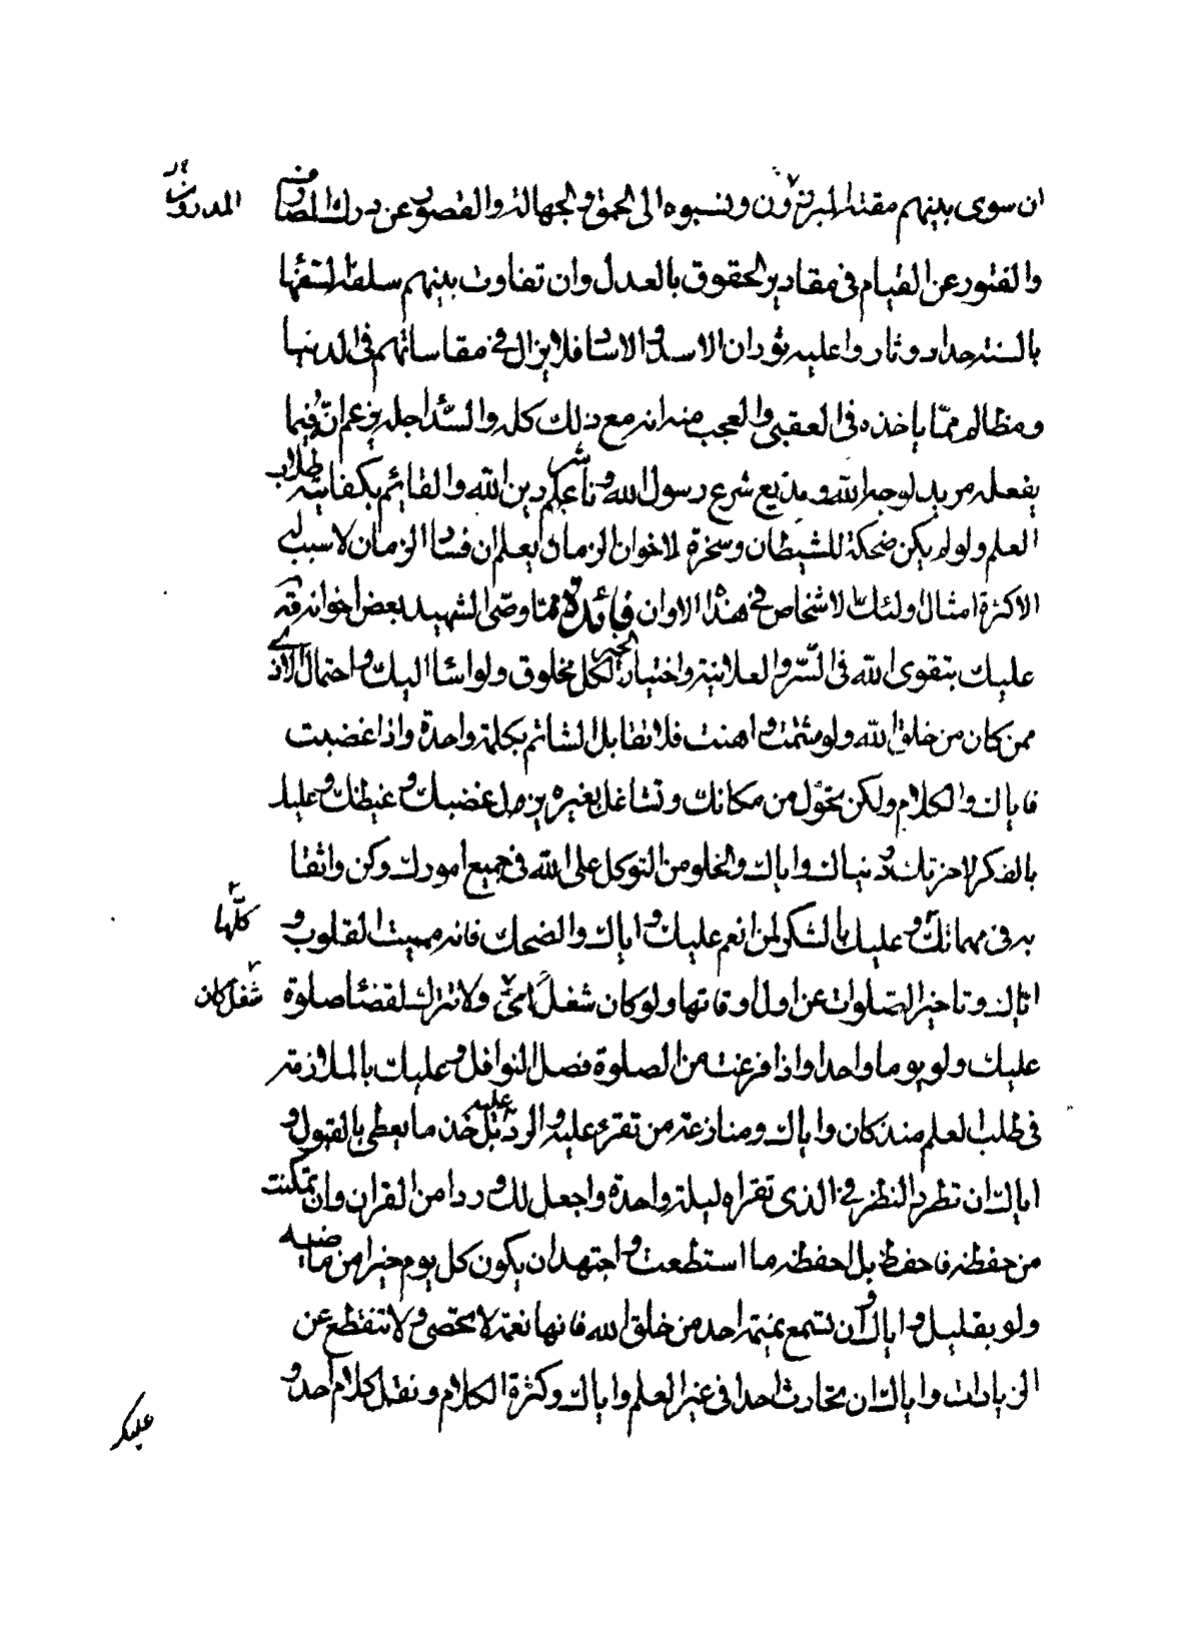 ان سوى بينهم مقته المبرزون ونسبوه الى الحمق والجهالة والقصور عن درك المصارف
المدرون
والفتور عن القيام فى مقادير الحقوق بالعدل وان تفاوت بينهم سلقه السفهاء
بالسنة حداد وثاروا عليه ثوران الاساود والاساد فلا يزال فى مقاساتهم فى الدنيا
ومظالم ممّا ياخذه فى العقبى والعجب منه انه مع ذلك كله والسداجله يزعم انّ فيما
يفعله مريد لوجه الله ومذيع شرع رسول الله وناشر علم دين الله والقائم بكفاية طلاب
العلم ولو لم يكن ضحكة للشيطان وسخرة لاخوان الزمان يعلم ان فساد الزمان لا سبب له
الا كثرة امثال اولئك الاشخاص فى هذا الاوان فائدة ممّا وصّى الشهيد بعض اخوانه قه
عليك بتقوى الله فى السّر والعلانية واختيار الخير لكل مخلوق ولو اسا اليك واحتمال الاذى
ممن كان من خلق الله ولو شتمت واهنت فلا تقابل الشاتم بكلمة واحدة واذا غضبت
فاياك والكلام ولكن تحوّل من مكانك وتشاغل بغيره يزول غضبك وغيظك وعليك
بالفكر لاخرتك ودنياك واياك والخلو من التوكل على الله فى جميع امورك وكن واثقا
به فى مهماتك وعليك بالشكر لمن انعم عليك واياك والضحك فانه مميت القلوب و
كلّها
اياك وتاخير الصلوات عن اول اوقاتها ولو كان شغل اىّ ولا تترك لقضا صلوة
شغل كان
عليك ولو يوما واحدا واذا فرغت من الصلوة فصل النوافل وعليك بالملازمة
فى طلب العلم منذ كان واياك ومنازعة من تقرء عليه والرد عليه بل خذ ما يعطى بالقبول و
اياك ان تطرد النظر فى الذى تقراه ليلة واحدة واجعل لك وردا من القران وان تمكنت
من حفظه فاحفظ بل احفظه ما استطعت واجتهد ان يكون كل يوم خيرا من ماضيه
ولو بقليل واياك وان تسمع نميمة احد من خلق الله فانها نغمة لا تحصى ولا تنقطع عن
الزيادات واياك ان تحادث احدا فى غير العلم واياك وكثرة الكلام ونقل كلام احد و
عليك